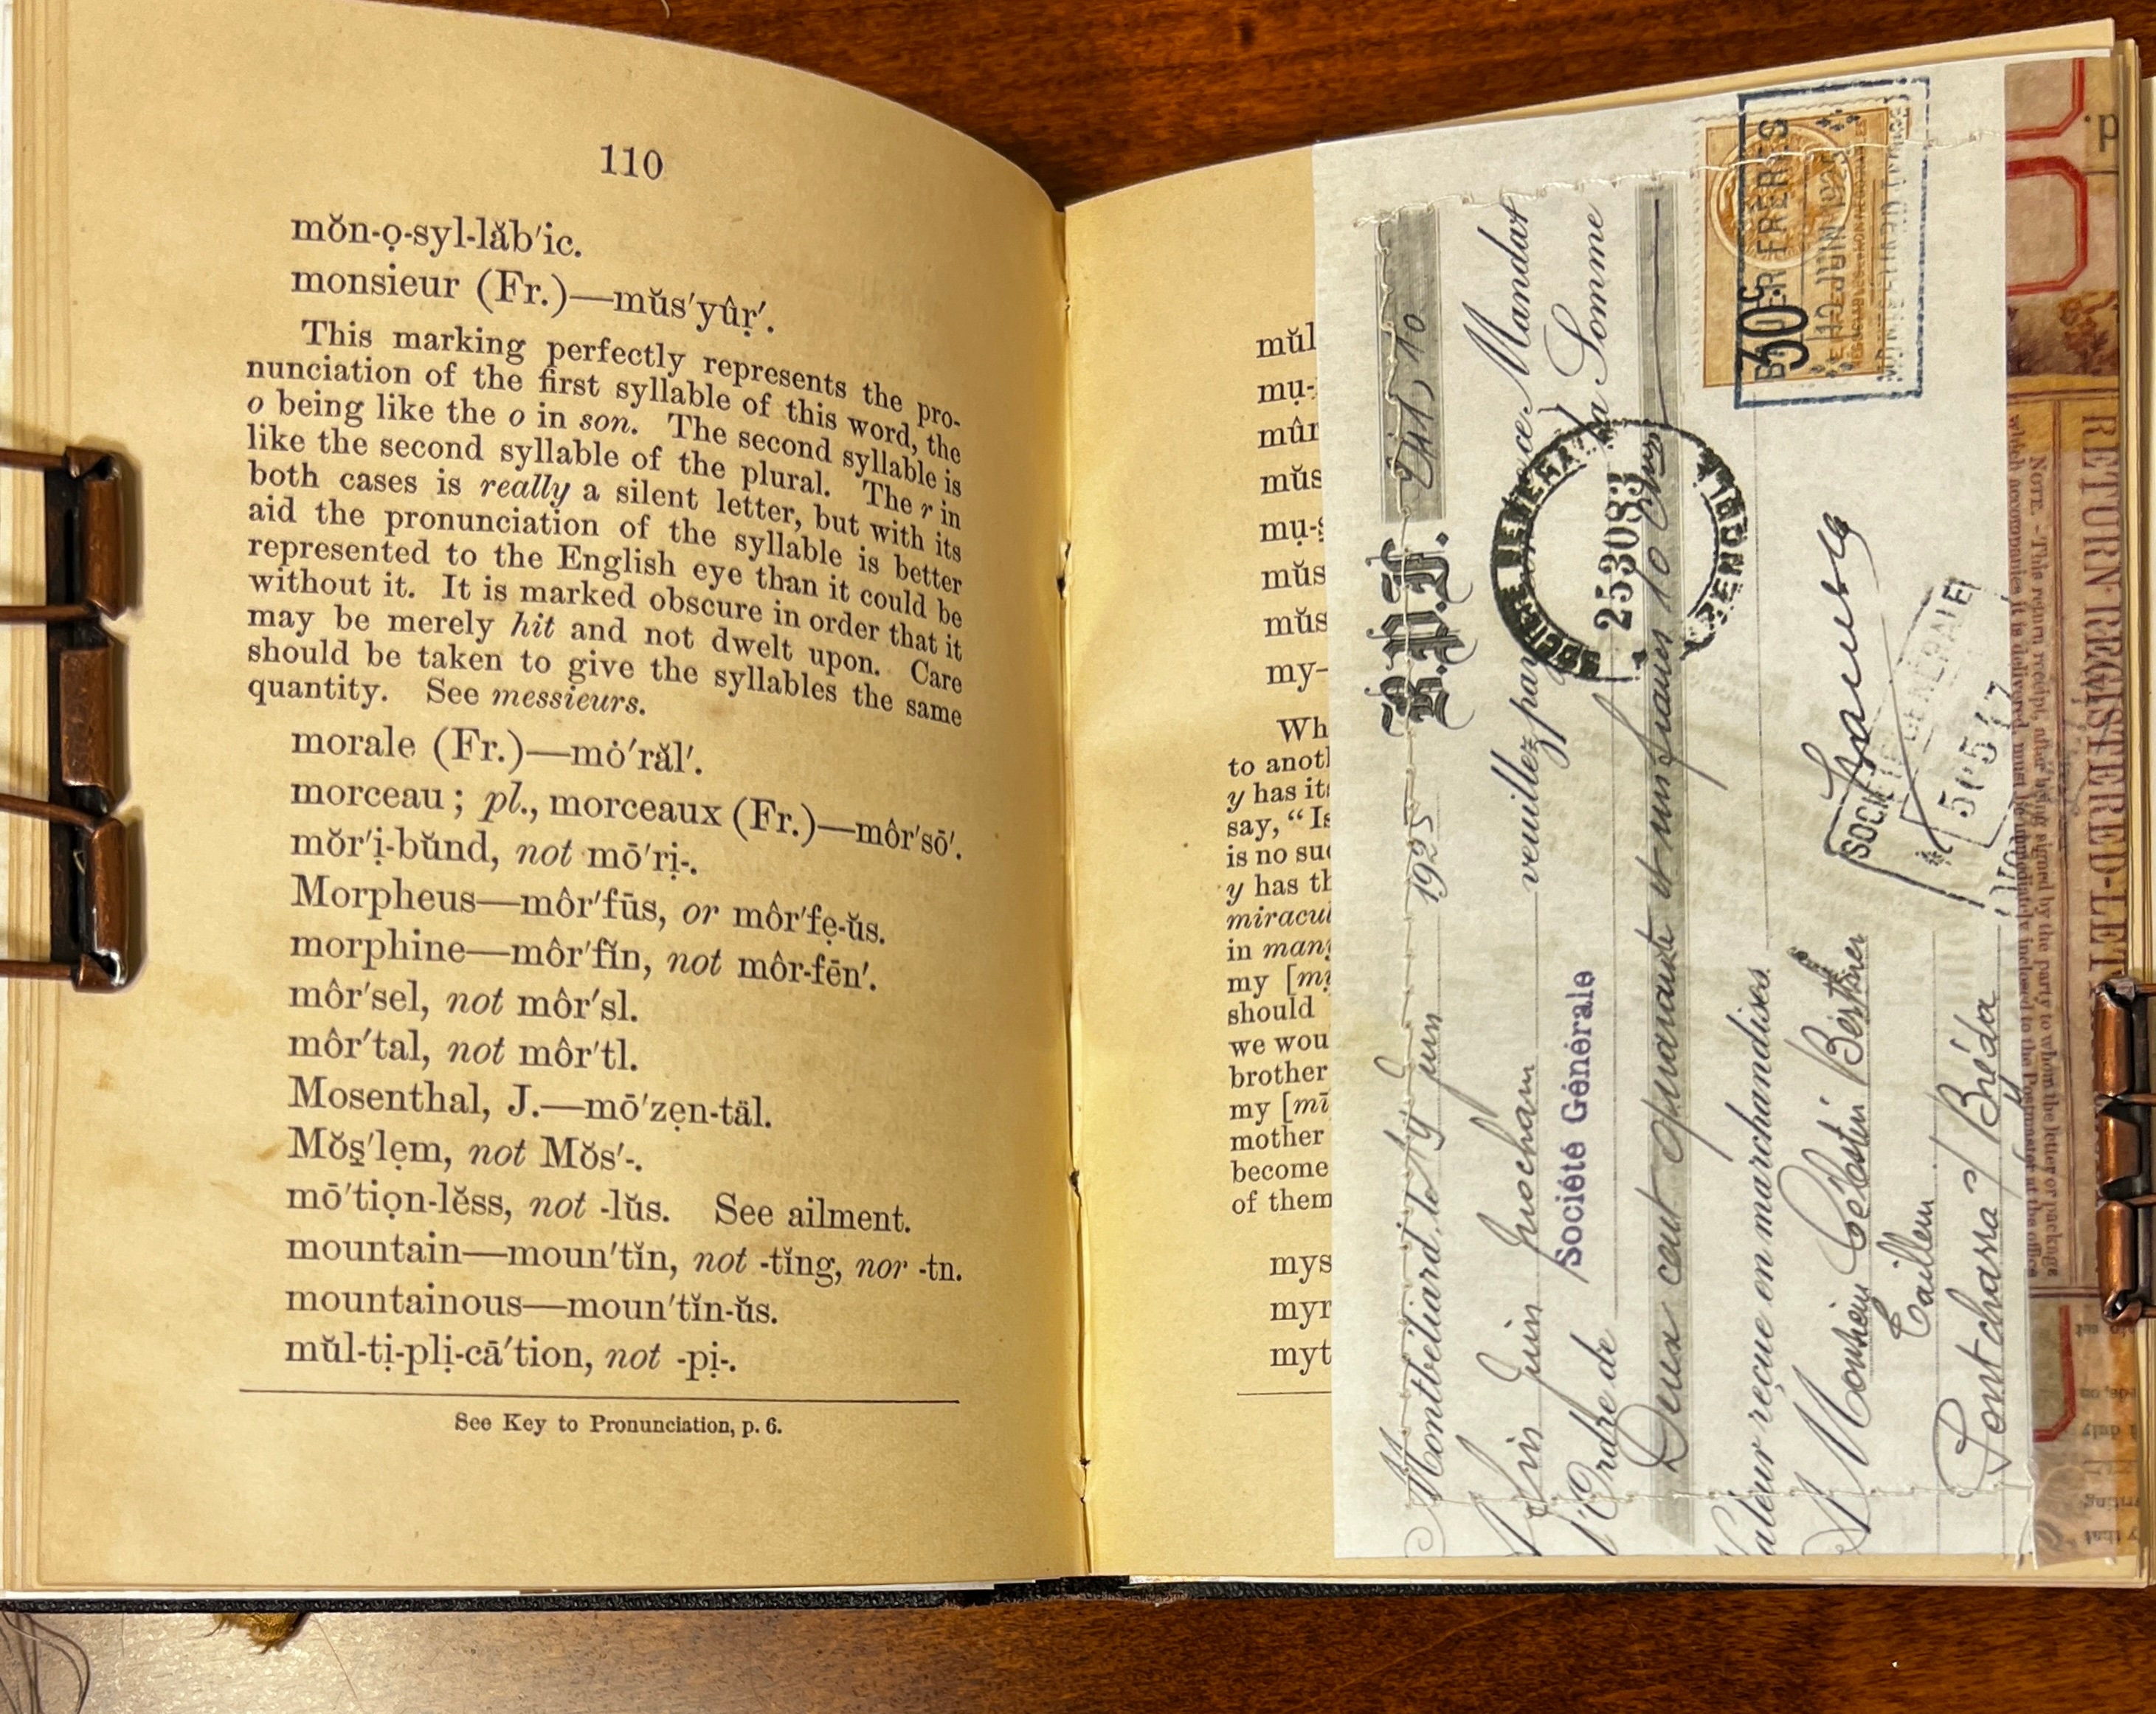 110
mŏn-ọ-syl-lăb′ic.
monsieur (Fr.)—mŭs′yûṛ′.
This marking perfectly represents the pro-
nunciation of the first syllable of this word, the
o being like the o in son. The second syllable is
like the second syllable of the plural. The r in
both cases is really a silent letter, but with its
aid the pronunciation of the syllable is better
represented to the English eye than it could be
without it. It is marked obscure in order that it
may be merely hit and not dwelt upon. Care
should be taken to give the syllables the same
quantity. See messieurs.
morale (Fr.)—mȯ′răl′.
morceau; pl., morceaux (Fr.)—môr′sō′.
mŏr′ị-bŭnd, not mō′rị-.
Morpheus—môr′fūs, or môr′fẹ-ŭs.
morphine—môr′fĭn, not môr-fēn′.
môr′sel, not môr′sl.
môr′tal, not môr′tl.
Mosenthal, J.—mō′zẹn-täl.
Mŏş′lẹm, not Mŏs′-.
mō′tiọn-lĕss, not -lŭs. See ailment.
mountain—moun′tĭn, not -tĭng, nor -tn.
mountainous—moun′tĭn-ŭs.
mŭl-tị-plị-cā′tion, not -pị-.
See Key to Pronunciation, p. 6.
mŭl
mụ-
mûr
mŭs
mụ-s
mŭs
mŭs
my-
Wh
to anotl
y has its
say, "Is
is no suc
y has th
miracul
in many
my [mị
should
we wou
brother
my [mī
mother
become
of them
mys
myr
myt
Montbéliard, le 9 Juin 1925 B.P.F. 241,10
Fin Juin prochain veuillez payer ce Mandat
l'Ordre de Société Générale la Somme
Deux cent quarante et un francs 10 cmes
Valeur reçue en marchandises
A Monsieur Célestin
Tailleur
Pontcharra s/ Bréda
SOCIETE GENERALE
AGENCE
253083
30c
FRERES
JUIN 1925
SOCIETE GENERALE
RETURN REGISTERED-LET
NOTE.-This return receipt, after being signed by the party to whom the letter or package
which accompanies it is delivered, must be immediately inclosed to the Postmaster at the office